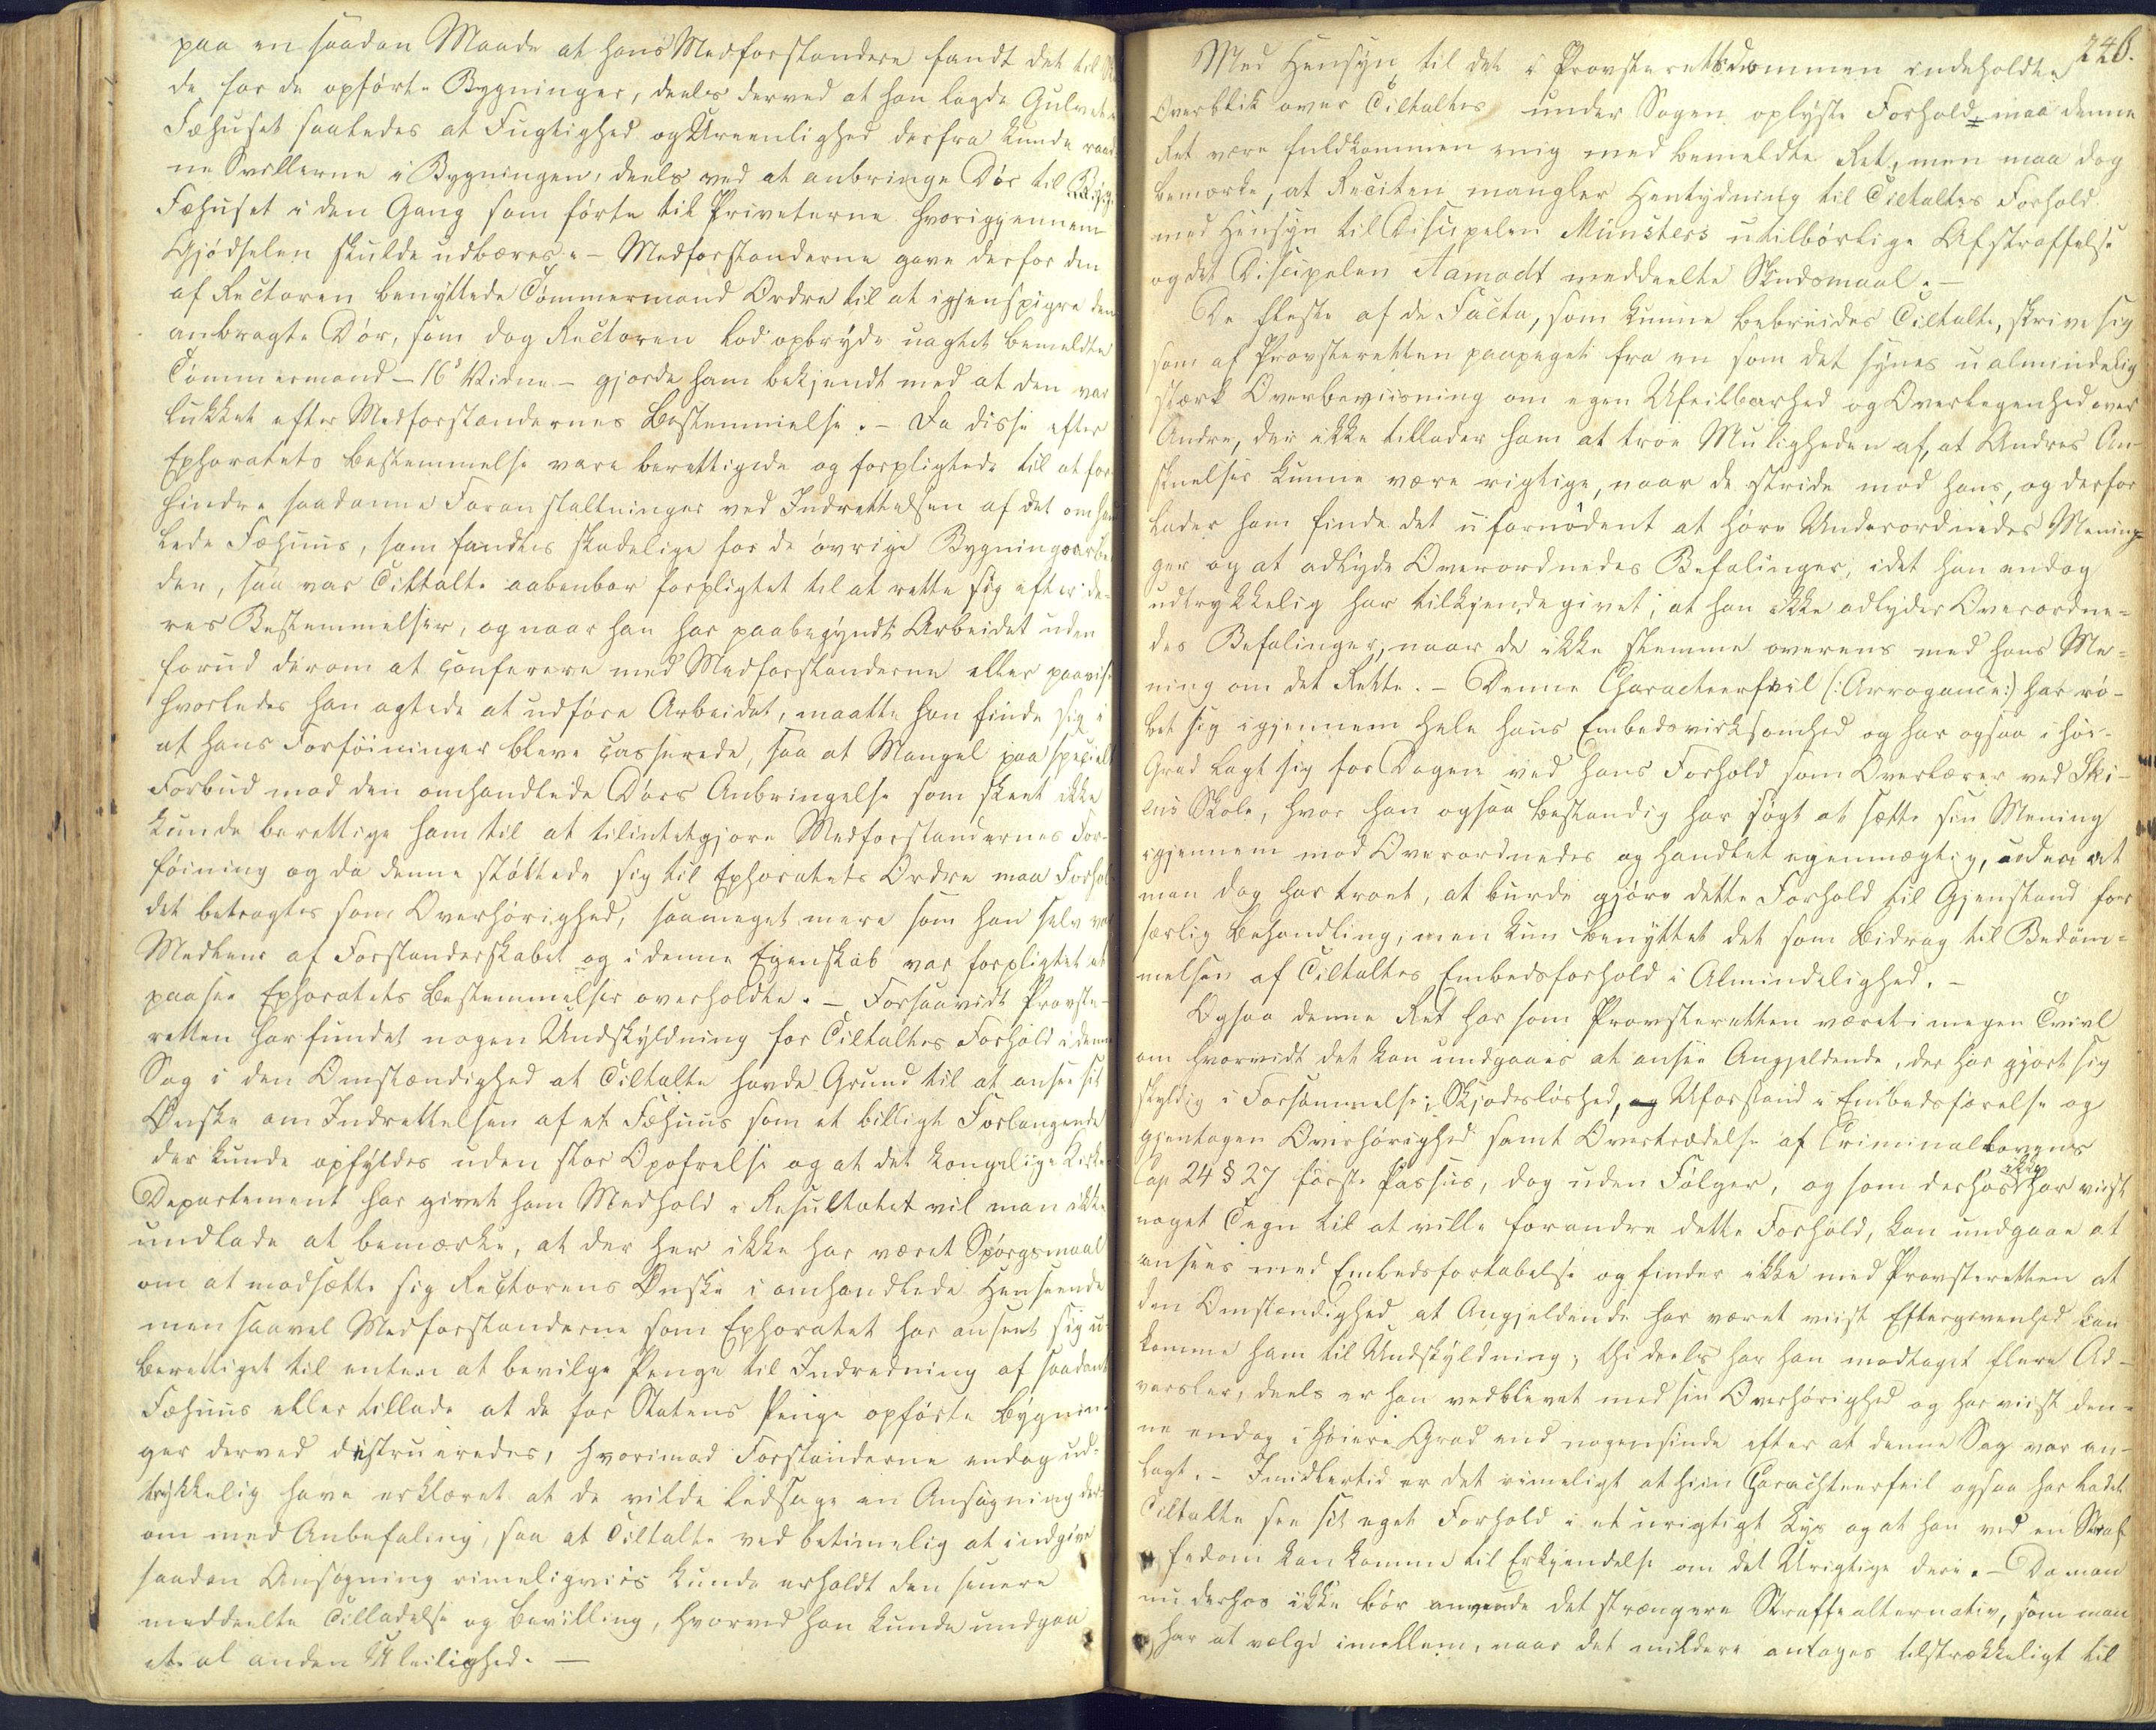 paa en saadan Maade at hans Medforstandere fandt det til
de for de opførte Bygninger, deels derved at han lagde Gulvet
Fæhuset saaledes at Fugtighed og Ureenlighed derfra kunde raad-
ne Svillerne i Bygningen, deels ved at anbringe Dør til
Fæhuset i den Gang som førte til Priveterne hvorigjennem
Gjødselen skulde udbæres. - Medforstanderne gave derfor den
af Rectoren benyttede Tømmermand Ordre til at igjenspigre den
anbragte Dør, som dog Rectoren lod opbryde uagtet bemeldte
Tømmermand - 16s Vidne - gjorde ham bekjendt med at den var
lukket efter Medforstandernes Bestemmelse. - Da disse efter
Ephoratets Bestemmelse vare berettigede og forpligtede til at for
hindre saadanne Foranstaltninger ved Indrettelsen af det omhand
lede Fæhuus, som fandtes skadelige for de øvrige Bygningsarbei
der, saa var Tiltalte aabenbar forpligtet til at rette sig efter de-
res Bestemmelser, og naar han har paabegyndt Arbeidet uden
forud derom at conferere med Medforstanderne eller paavise
hvorledes han agtede at udføre Arbeidet, maatte han finde sig i
at hans Forføininger bleve casserede, saa at Mangel paa specielt
Forbud mod den omhandlede Dørs Anbringelse som skeet ikke
kunde berettige ham til at tilintetgjøre Medforstandernes For-
føining og da denne støttede sig til Ephoratets Ordre maa Forhol
det betragtes som Overhørighed, saameget mere som han selv var
Medlem af Forstanderskabet og i denne Egenskab var forpligtet at
paasee Ephoratets Bestemmelser overholdte. - Forsaavidt Provste-
retten har fundet nogen Undskyldning for Tiltaltes Forhold i denne
Sag i den Omstændighed at Tiltalte havde Grund til at ansee sit
Ønske om Indrettelsen af et Fæhuus som et billigt Forlangende
der kunde opfyldes uden stor Opofrelse og at det kongelige Kirke
Departement har givet ham Medhold i Resultatet vil man ikke
undlade at bemærke, at der her ikke har været Spørgsmaal
om at modsætte sig Rectorens Ønske i omhandlede Henseende
men saavel Medforstanderne som Ephoratet har anseet sig u-
berettiget til enten at bevilge Penge til Indredning af saadant
Fæhuus eller tillade at de for Statens Penge opførte Bygnin-
ger derved distrueredes, hvorimod Forstanderne endog ud-
trykkelig have erklæret at de vilde ledsage en Ansøgning der-
om med Anbefaling, saa at Tiltalte ved betimelig at indgive
saadan Ansøgning rimeligviis kunde erholdt den senere
meddeelte Tilladelse og Bevilling, hvorved han kunde undgaa
et al anden Uleilighed. -
246.
Med Hensyn til det i Provsteretsdommen indeholdte
Overblik over Tiltaltes under Sagen oplyste Forhold, maa denne
Ret være fuldkommen enig med bemeldte Ret, men maa dog
bemærke, at Reciten mangler Hentydning til Tiltaltes Forhold
med Hensyn til Discipelen Münsters utilbørlige Afstraffelse
og det Discipelen Aamodt meddeelte Skudsmaal. -
De fleste af de Facta, som kunne bebreides Tiltalte, skrive sig
som af Provsteretten paapeget fra en som det synes ualmindelig
stærk Overbeviisning om egen Ufeilbarhed og Overlegenhed over
Andre, der ikke tillader ham at troe Muligheden af, at Andres An-
skuelser kunne være rigtige, naar de stride mod hans, og derfor
lader ham finde det ufornødent at høre Underordnedes Menin-
ger og at adlyde Overordnedes Befalinger, idet han endog
udtrykkelig har tilkjendegivet, at han ikke adlyder Overordne-
des Befalinger, naar de ikke stemme overens med hans Me-
ning om det Rette. - Denne Characteerfeil (: Arrogance :) har rø-
bet sig igjennem hele hans Embedsvirksomhed og har ogsaa i høi
Grad lagt sig for Dagen ved hans Forhold som Overlærer ved Ski-
ens Skole, hvor han ogsaa bestandig har søgt at sætte sin Mening
igjennem mod Overordnedes og handlet egenmægtig, uden at
man dog har troet, at burde gjøre dette Forhold til Gjenstand for
særlig Behandling, men kun benyttet det som Bidrag til Bedøm-
melsen af Tiltaltes Embedsforhold i Almindelighed. -
Ogsaa denne Ret har som Provsteretten været i megen Tvivl
om hvorvidt det kan undgaaes at ansee Angjeldende, der har gjort sig
skyldig i Forsømmelse, Skjødesløshed, og Uforstand i Embedsførelse og
gjentagen Overhørighed samt Overtrædelse af Criminallovens
Cap 24 § 27 første Passus, dog uden Følger, og som derhos ikke har viist
noget Tegn til at ville forandre dette Forhold, kan undgaae at
ansees med Embedsfortabelse og finder ikke med Provsteretten at
den Omstændighed at Angjeldende har været viist Eftergivenhed kan
komme ham til Undskyldning; thi deels har han modtaget flere Ad-
varsler, deels er han vedblevet med sin Overhørighed og har viist den-
ne endog i høiere Grad end nogensinde efter at denne Sag var an-
lagt. - Imidlertid er det rimeligt at hiin Carachteerfeil ogsaa har ladet
Tiltalte see sit eget Forhold i et urigtigt Lys og at han ved en Straf-
fedom kan komme til Erkjendelse om det Urigtige deri. - Da man
nu derhos ikke bør anvende det strængere Straffealternativ, som man
har at vælge imellem, naar det mildere antages tilstrækkeligt til